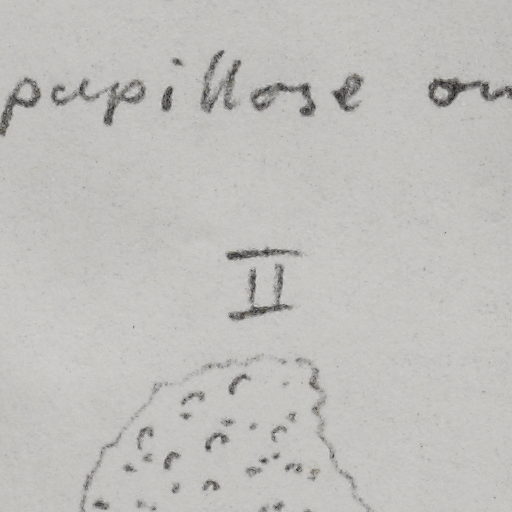 papillose on
II